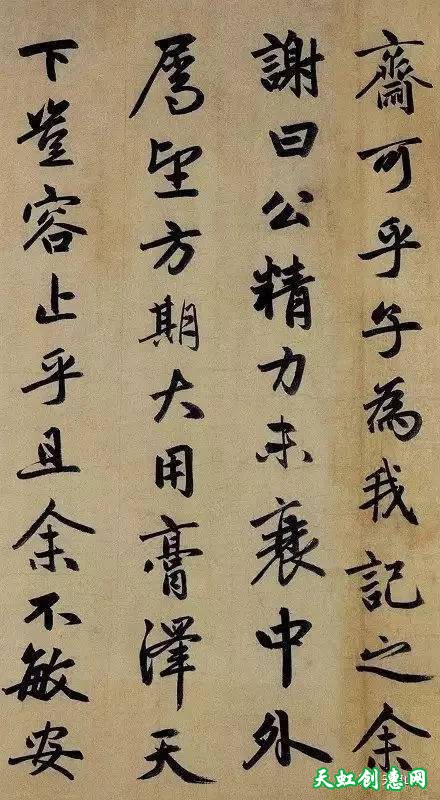 齋可乎子為我記之余
謝曰公精力未衰中外
屬望方期大用膏澤天
下豈容止乎且余不敏安
天虹创德网